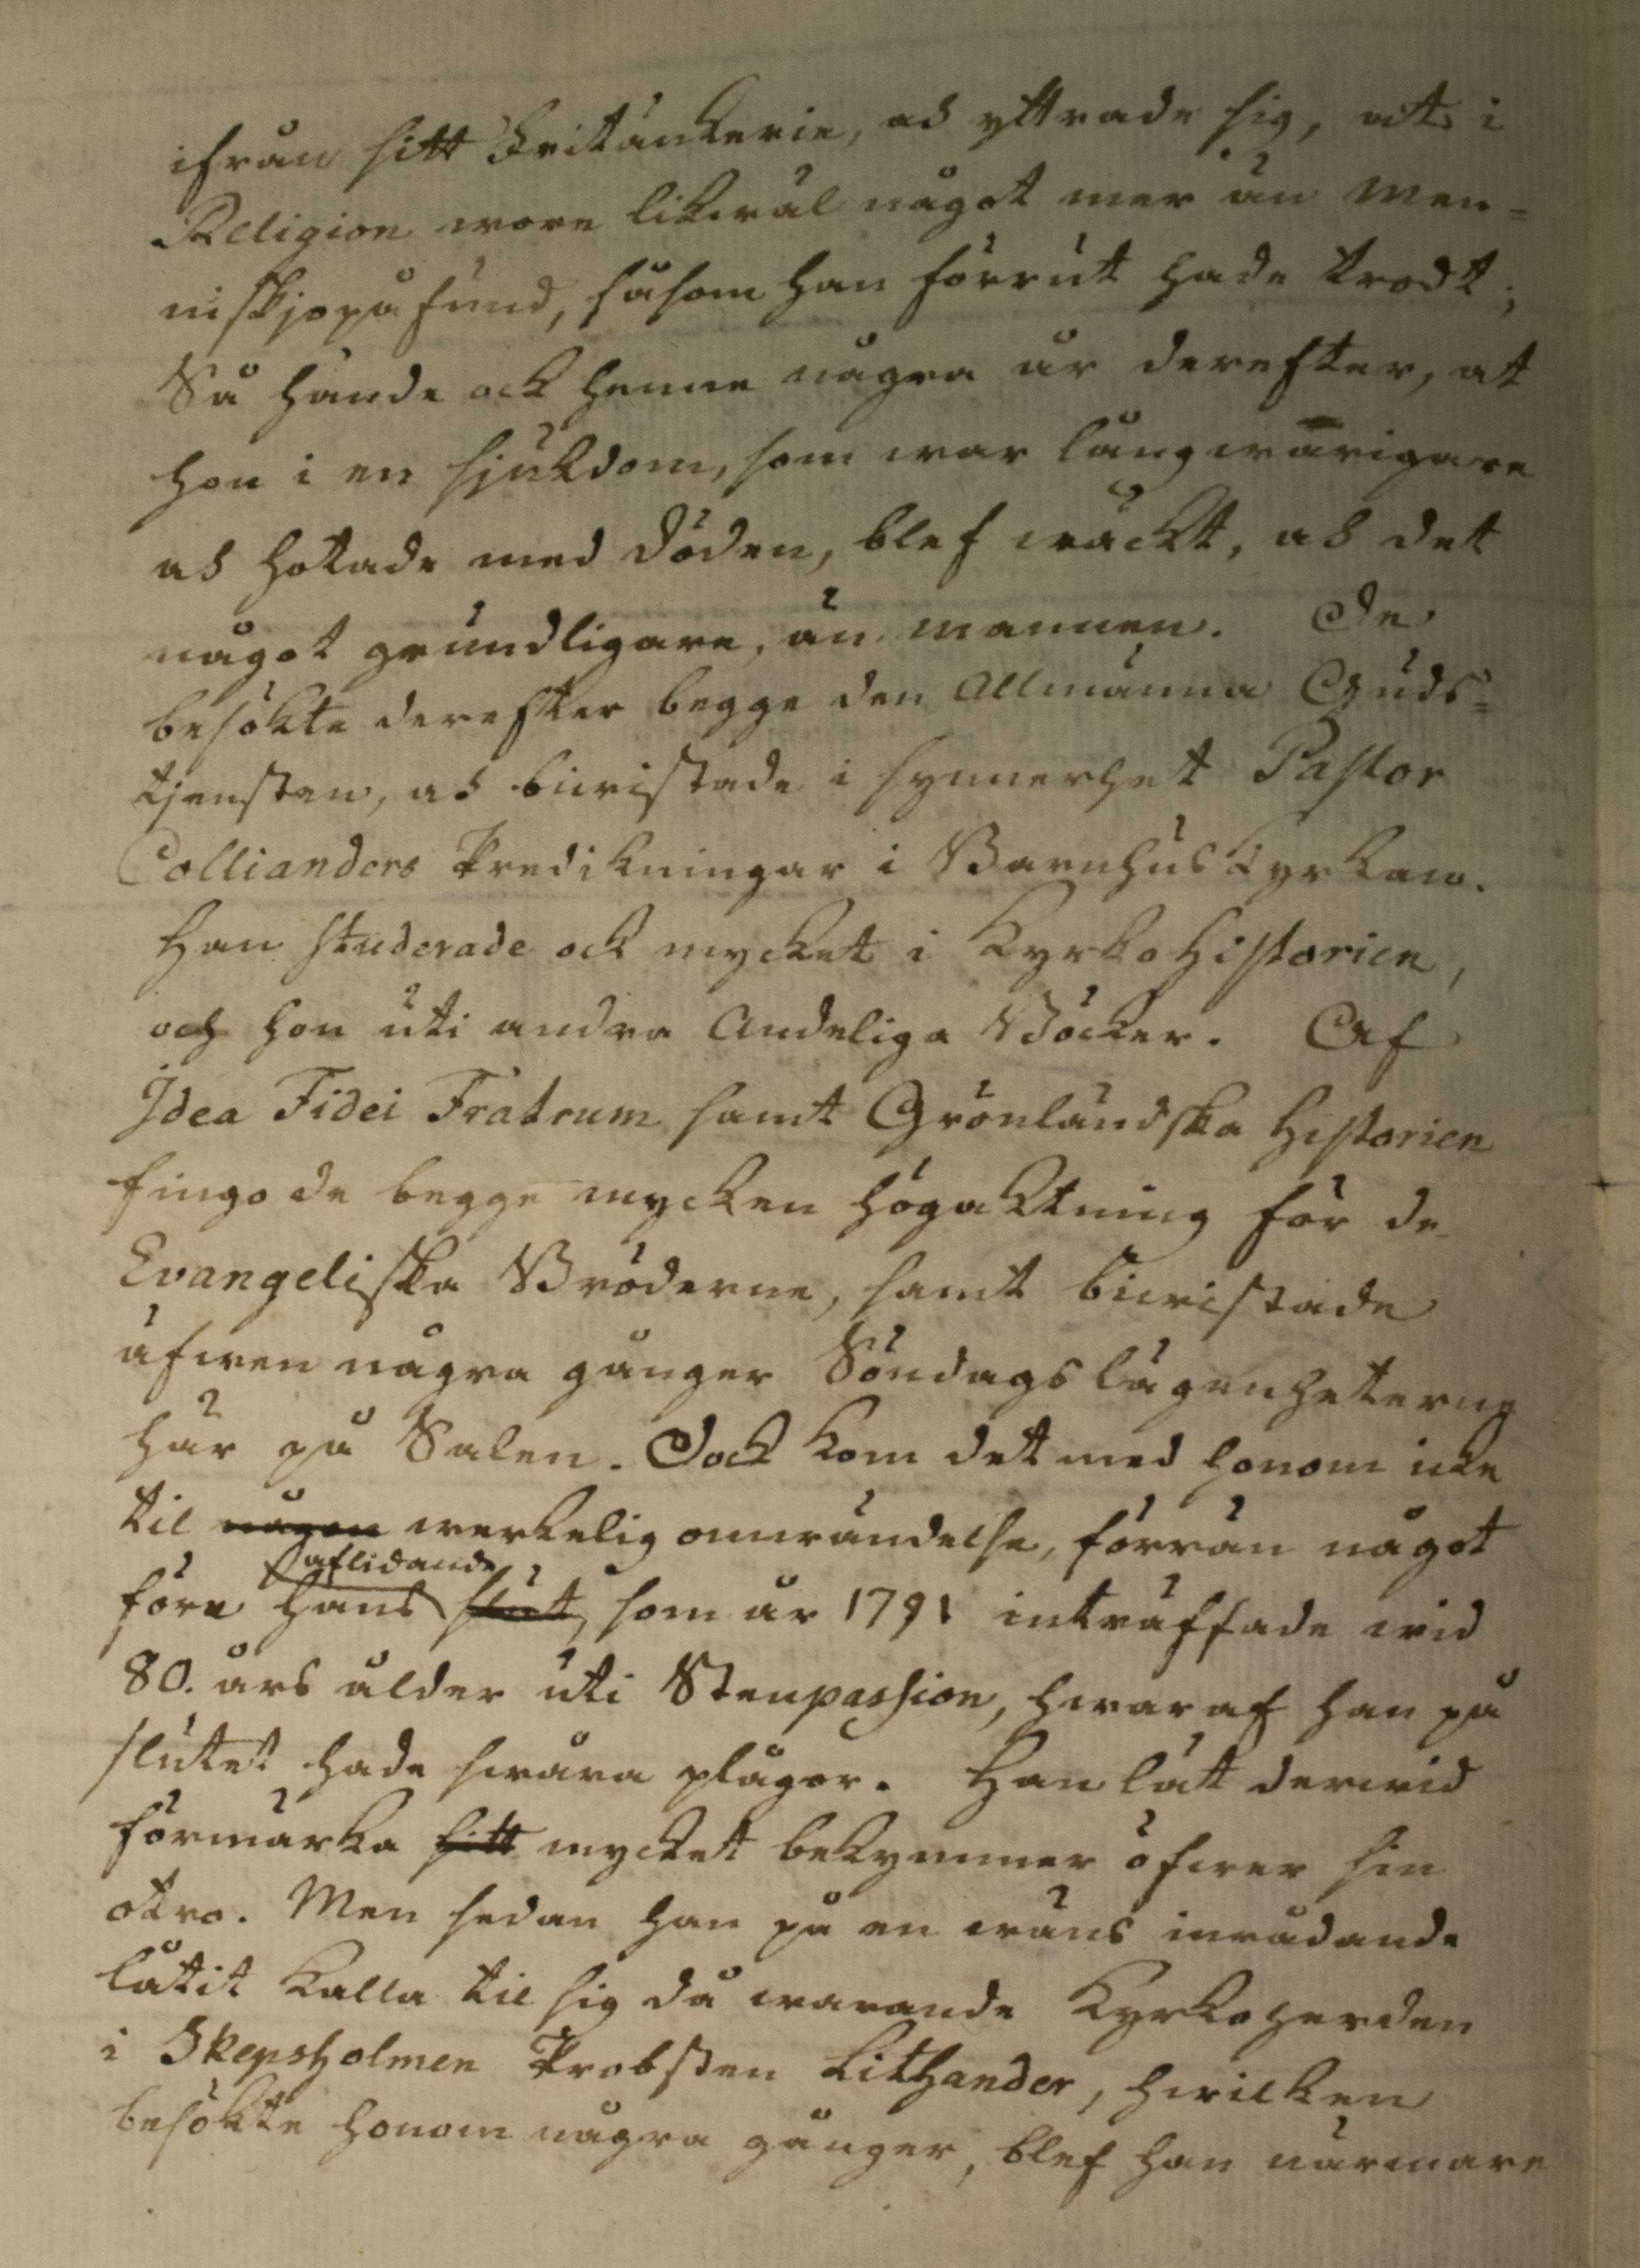 ifrån sitt Fritänkerie, och yttrade sig, at i
Religion wore likwäl något mer än Men=
niskjopåfund, såsom han förrut hade trodt;
Så hände ock henne några år derefter, at
hon i en sjukdom, som war långwarigare
och hotade med Döden, blef wäckt, och det
något grundligare, än mannen. De
besökte derefter begge den Allmänna Guds=
tjensten, och biwistade i synnerhet Pastor
Collianders Predikningar i Barnhuskyrkan.
Han studerade ock mycket i KyrkoHistorien,
och hon uti andra Andeliga Böcker. Af
Idea Fidei Fratrum samt Grönländska Historien
fingo de begge mycken högaktning för de
Evangeliska Bröderne, samt biwistade
äfwen några gånger Söndagslägenheterne
här på Salen. Dock kom det med honom icke
til någon werkelig omwändelse, förrän något
aflidande
före hans slut, som år 1791 inträffade wid
80. års ålder uti Stenpassion, hwaraf han på
slutet hade swåra plågor. Han lät derwid
förmärka sitt mycket bekymmer öfwer sin
otro. Men sedan han på en wäns inrådande
låtit kalla til sig då warande Kyrkoherden
i Skepsholmen Probsten Lithander, hwilken
besökte honom några gånger, blef han närmare